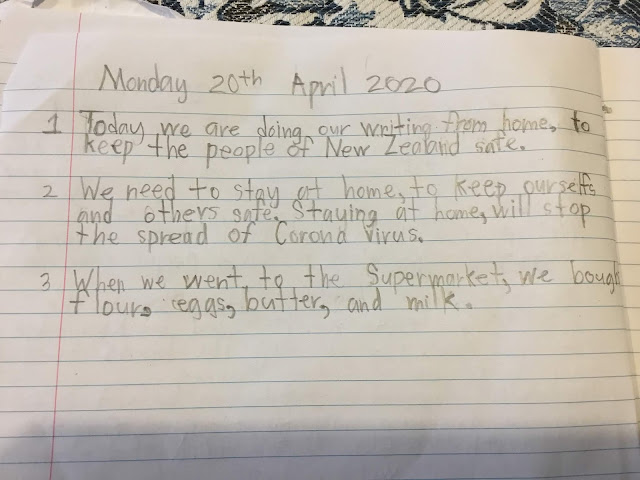 Monday 20th April 2020
1 Today we are doing our writing from home, to
keep the people of New Zealand safe.
2 We need to stay at home, to keep ourselfs
and others safe. Staying at home, will stop
the spread of Corona Virus.
3 When we went to the Supermarket, we bought
flour, eggs, butter, and milk.